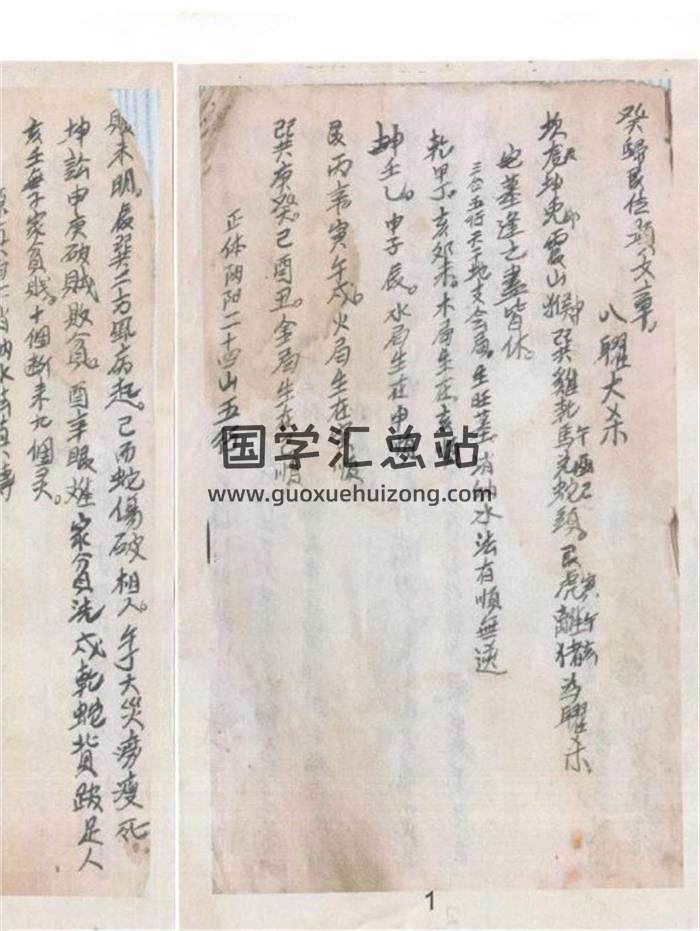 癸歸艮位顯文章。
八曜大杀
坎龙辰坤兔卯震山猴申巽雞酉乾馬午兑蛇頭巳。艮虎寅離猪亥為曜杀
宅墓逢之盡皆休。
三合五行天干地支会局。生旺墓消纳水法有順無逆
乾甲丁。亥卯未。木局生在亥
坤壬乙。申子辰。水局生在申
艮丙辛。寅午戍。火局生在
巽庚癸。巳酉丑。金局生在 順
正体阴阳二十四山五行
敗未明。辰巽二方風病起。巳丙蛇傷破相人。午丁大災痨瘦死。
坤訟申庚破賊敗貧。酉辛眼难家貧洗 戍乾蛇貨跛足人
亥壬無子家貧贱。十個斷来九個灵。
国学汇总站
www.guoxuehuizong.com
1